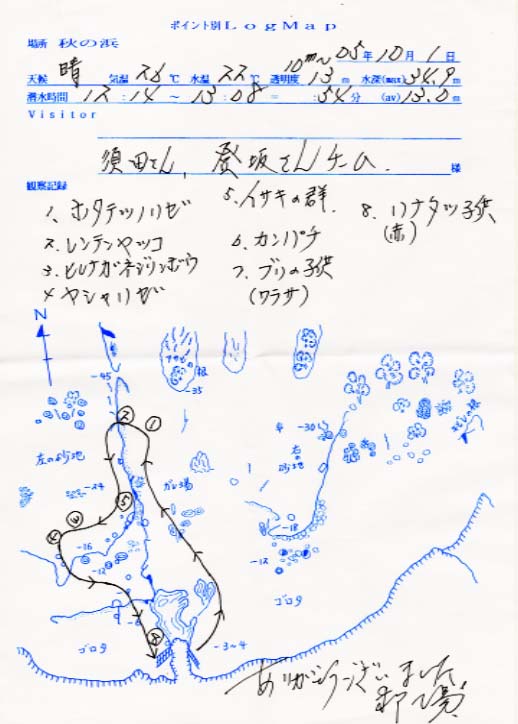 ポイント別LogMap
場所 秋の浜 05年10月1日
天候 晴 気温 26℃ 水温 22℃ 透明度 10m~13m 水深(max)34.9m
潜水時間 12:14 ～ 13:08 = :54分 (av)13.0m
Visitor
須田さん, 登坂さんチーム. 様
観察記録
1. ホタテツノハゼ
2. レンテンヤッコ
3. ヒレナガネジリンボウ
4 ヤシャハゼ
5. イサキの群.
6. カンパチ
7. ブリの子供
(ワラサ)
8. ハナタツ子供
(赤)
N
-45
根
-35
2
1
-30
左の砂地
右の砂地
-24
ガレ場
5
4
-18
-16
-12
-12
ゴロタ
ゴロタ
-3~4
ありがとうございました。